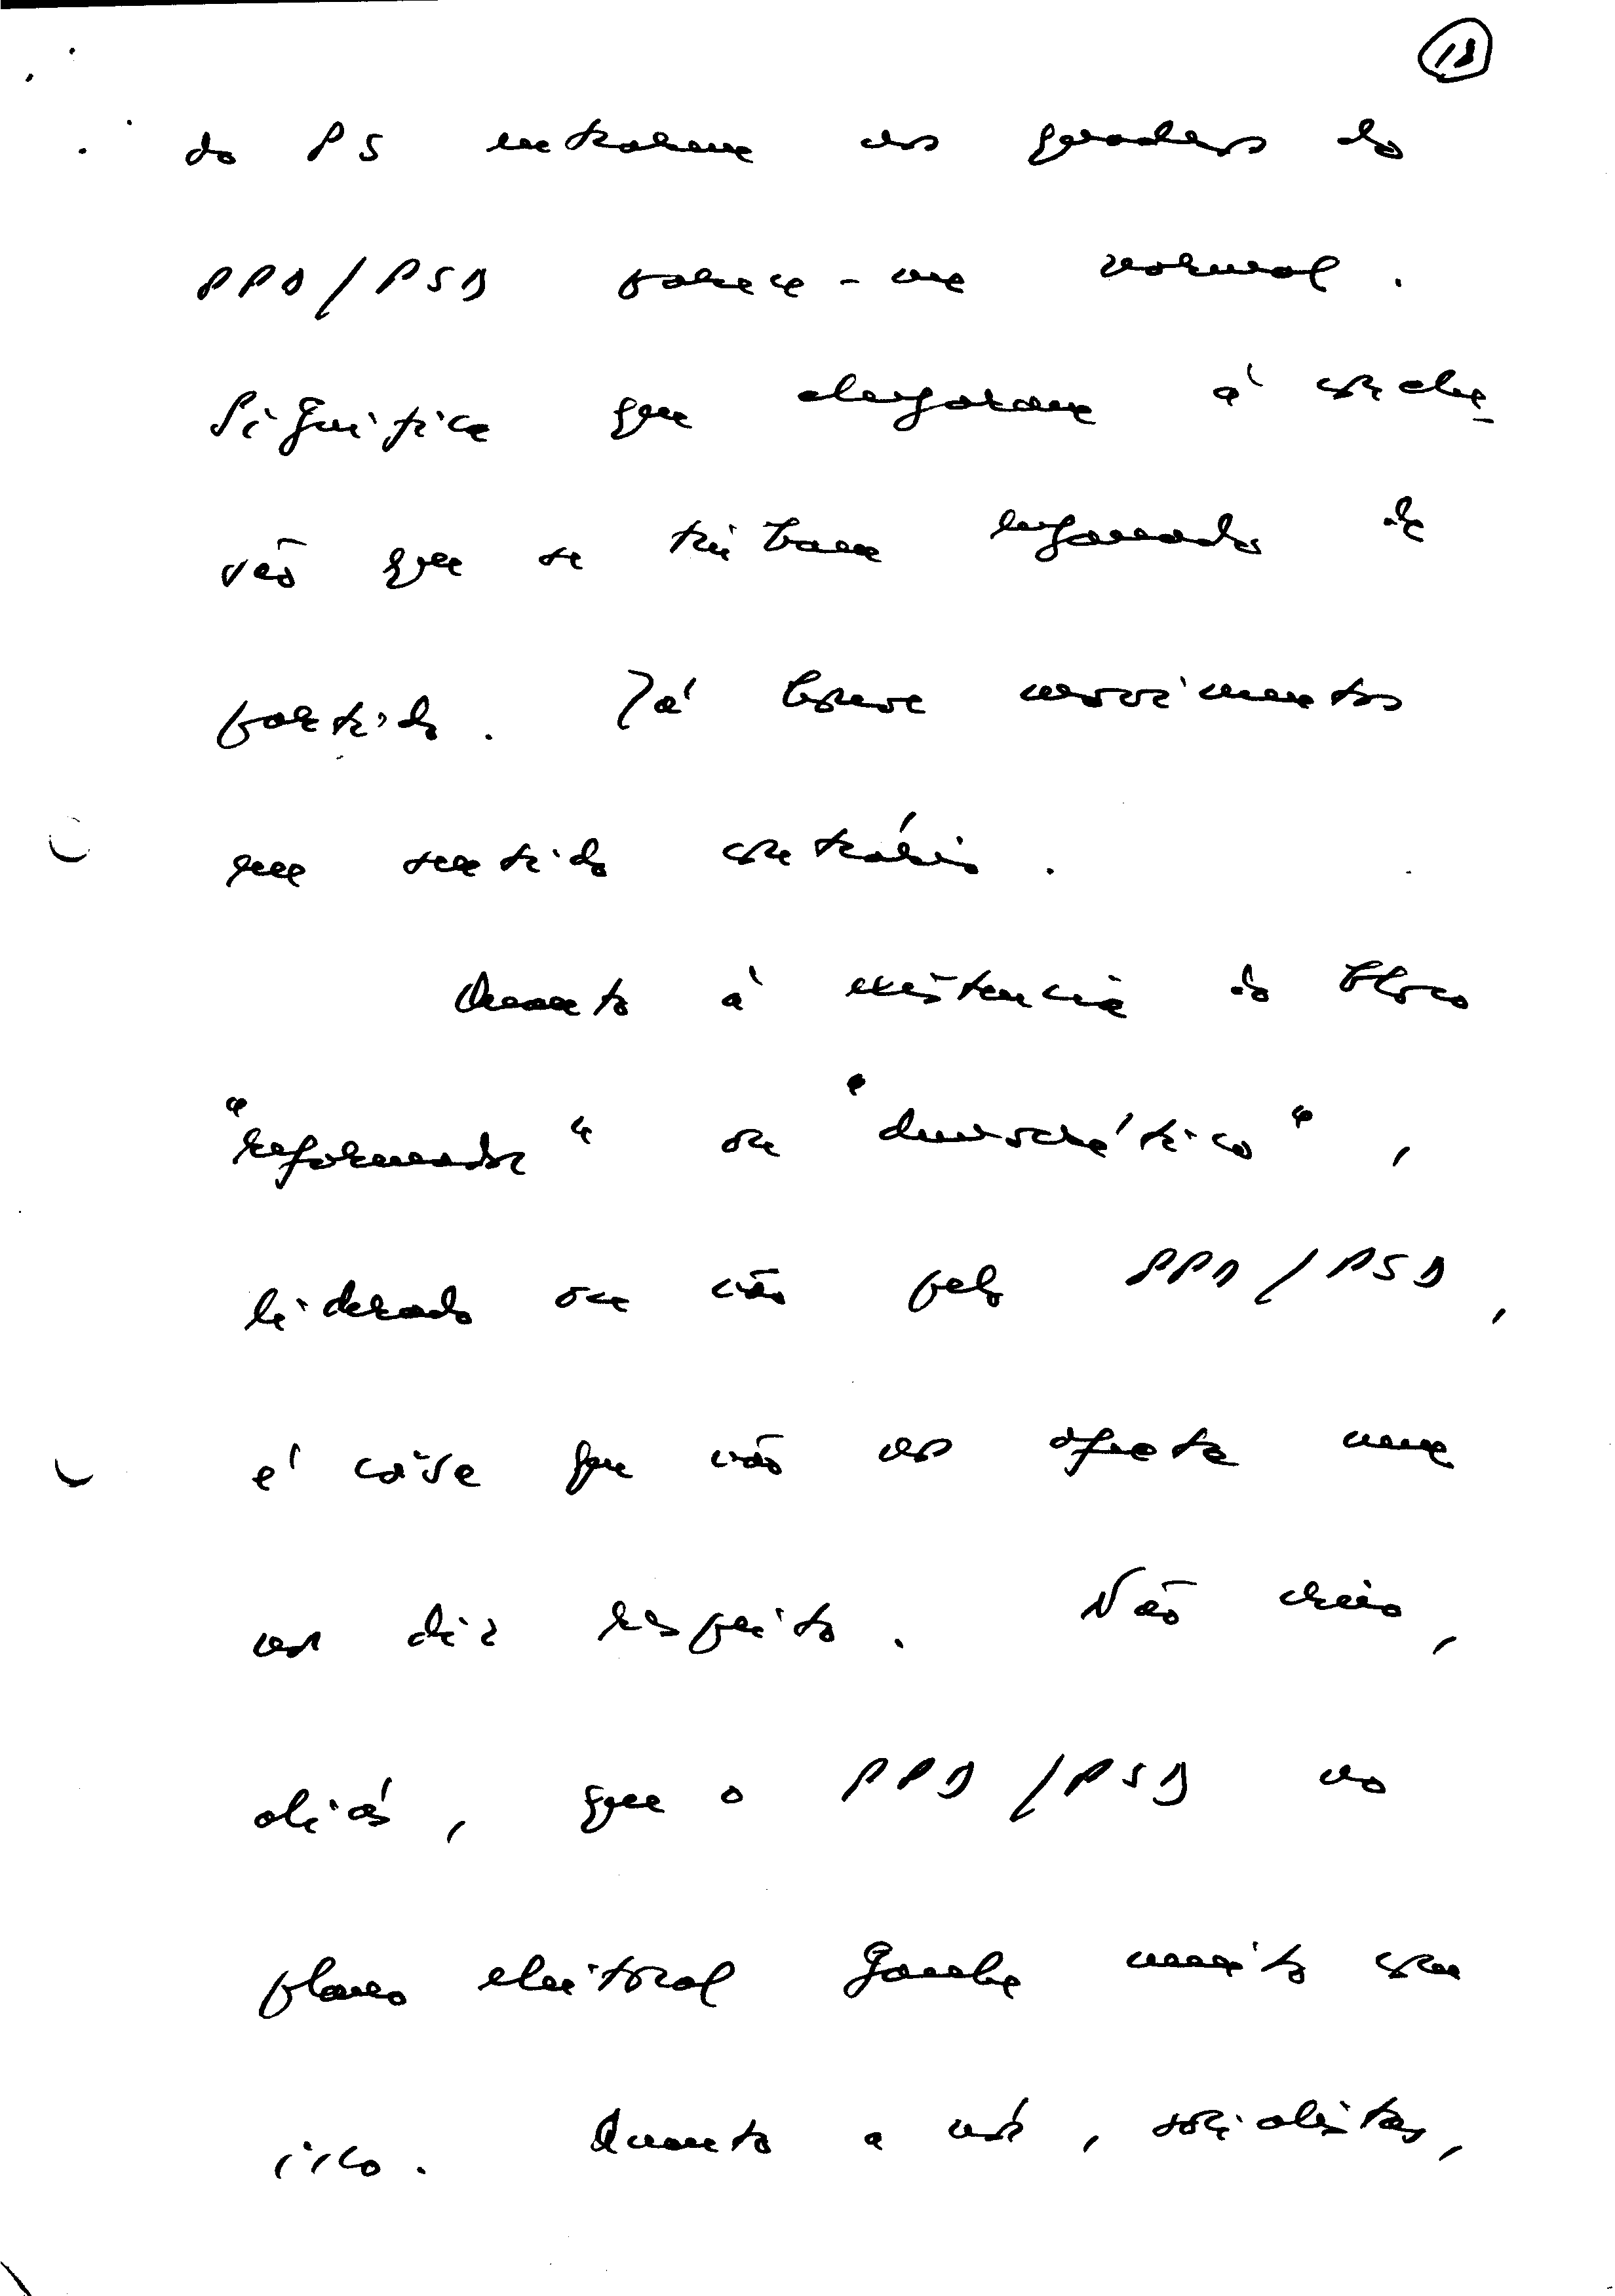 18
do PS entrarem nos quadros do
PPD/PSD parece-me normal.
Significa que chegaram à conclu-
são que se tinham enganado de
partido. Já houve movimentos
em sentido contrário.
Quanto à existência do bloco
"reformador" ou "democrático",
liderado ou não pelo PPD/PSD,
é coisa que não nos afecta nem
nos diz respeito. Não creio,
aliás, que o PPD/PSD no
plano eleitoral ganhe muito com
isso. Quanto a nós, socialistas,